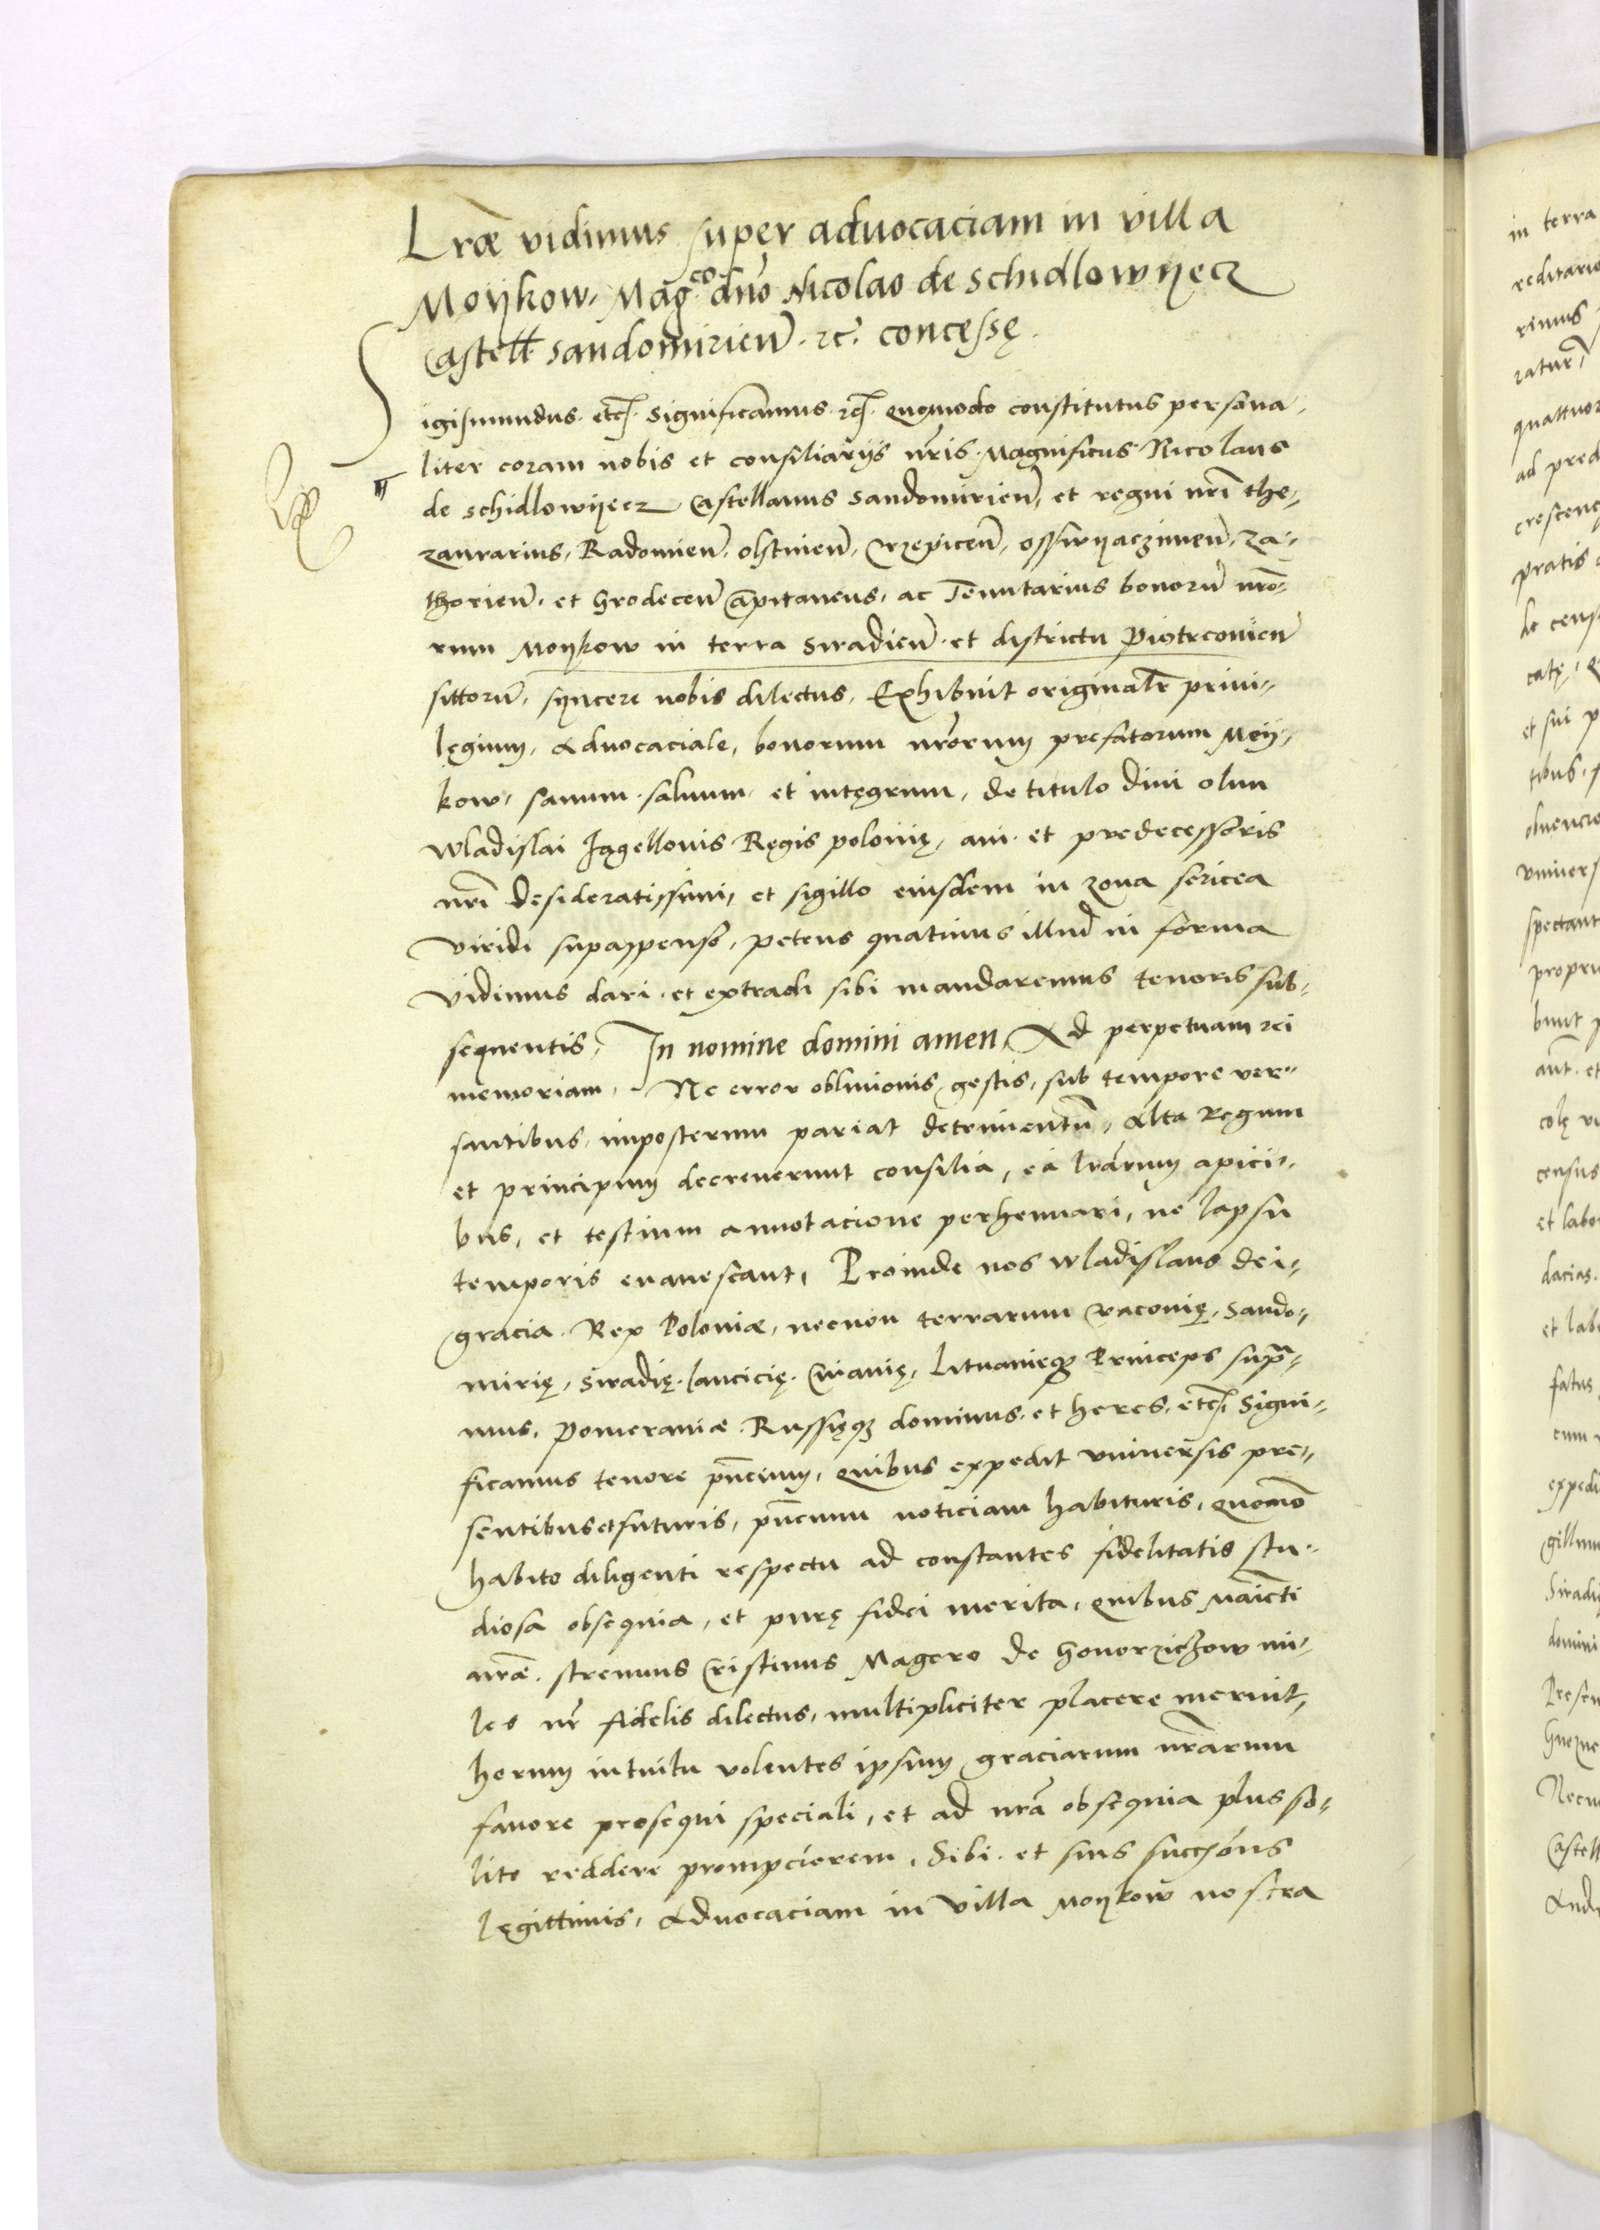 Lræ vidimus super aduocaciam in villa
Moykow, Mag.co dno Nicolao de Schidlowyecz
Castell. Sandomirien̄. rc̄. concessę.
Sigismundus. etc̄. Significamus. rc̄. Quomodo constitutus persona-
liter coram nobis et consiliarijs nris. Magnificus Nicolaus
de Schidlowyecz Castellanus Sandomirien̄, et regni nri the-
zaurarius, Radomien̄. olstinen̄. Crzepicen̄, osswyaczimen̄, Za-
thorien̄. et Grodecen̄ Capitaneus, ac Tenutarius bonorū nro-
rum Moykow in terra Siradien̄. et districtu Piotrconien̄
sittorū, syncere nobis dilectus, Exhibuit originale priui-
legium, Aduocaciale, bonorum nrorum prefatorum Moy-
kow, sanum. saluum. et integrum, de titulo diui olim
Wladislai Jagellonis Regis polonię, aui. et predecessoris
nri desideratissimi, et sigillo eiusdem in zona sericea
viridi supappenso, petens quatinus illud in forma
vidimus dari. et extradi sibi mandaremus tenoris sub-
sequentis, In nomine domini amen, Ad perpetuam rei
memoriam, Ne error obliuionis, gestis, sub tempore ver-
santibus, imposterum pariat detrimentū, Alta Regum
et principum decreuerunt consilia, ea lrarum apici-
bus, et testium annotacione perhennari, ne lapsu
temporis euanescant, Proinde nos Wladislaus dei-
gracia. Rex Poloniæ, necnon terrarum Cracouię, Sando-
mirię, Siradię. Lancicię. Cuiauię, Lituanieq3 Princeps supre-
mus, Pomeraniæ Russięq3 dominus. et heres. etc̄. Signi-
ficamus tenore pn̄cium, quibus expedit vniuersis pre-
sentibus et futuris, pn̄cium noticiam habituris, Quomō
habito diligenti respectu ad constantes fidelitatis stu-
diosa obsequia, et purę fidei merita, quibus Maiesti
nræ. strenuus Cristinus Magero de Gonorziczow mi-
les nr̄ fidelis dilectus, multipliciter placere meruit,
horum intuitu volentes ipsum graciarum nrarum
fauore prosequi speciali, et ad nra obsequia plus so-
lito reddere prompciorem, Sibi. et suis succōribus
legittimis, Aduocaciam in villa Moykow nostra